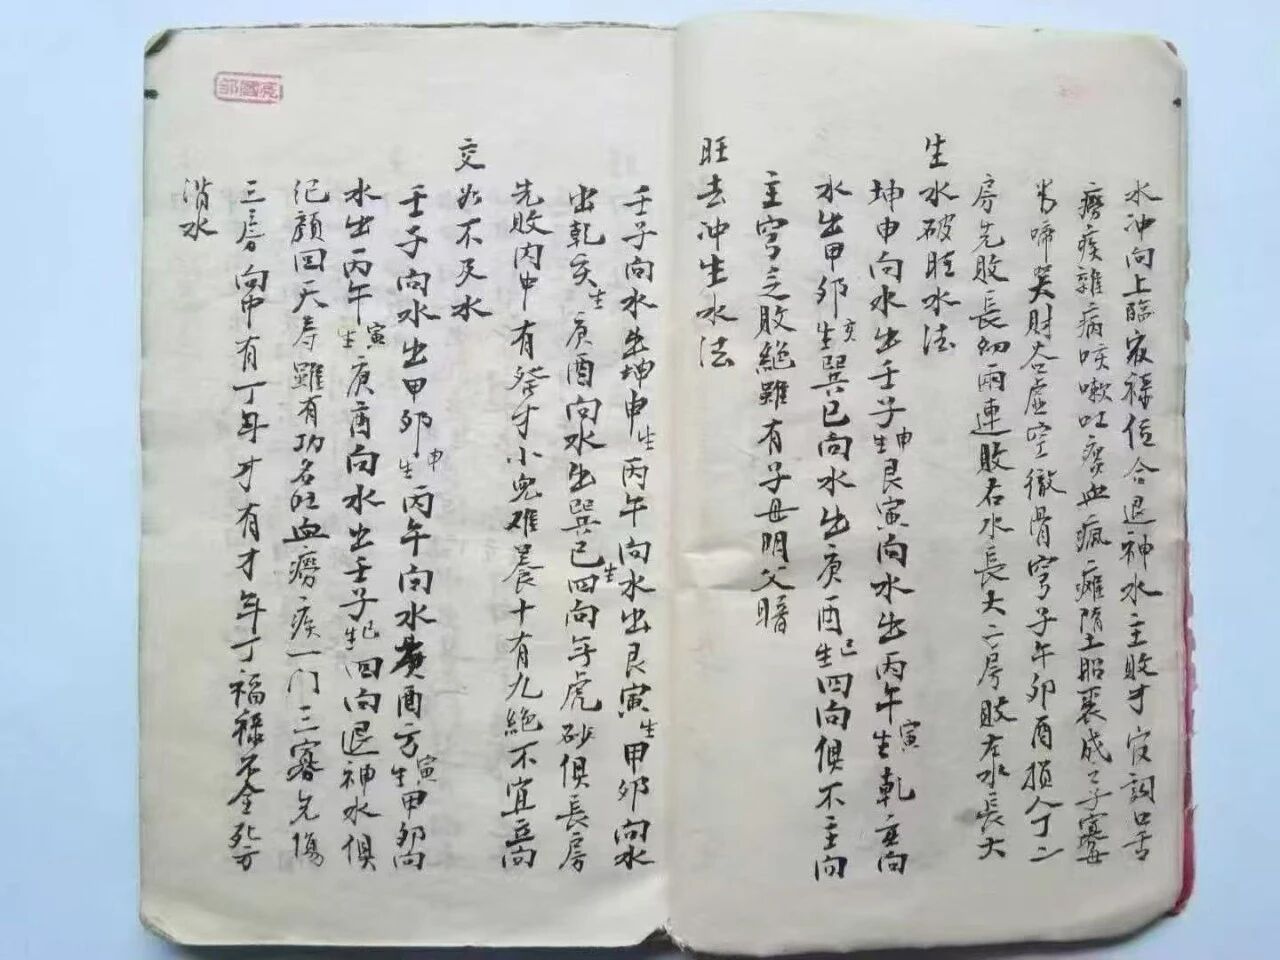 水冲向上臨衰禄位合退神水主敗才官詞口舌
癆疾雜病咳嗽吐痰血瘋癱墮土胎裹成之子寡母
常啼哭財谷虛空徹骨穹子午卯酉損人丁二
房先敗長幼兩連敗右水長大二房敗左水長大
生水破旺水法
坤申向水出壬子申生艮寅向水出丙午寅生乾亥向
水出甲卯亥生巽巳向水出庚酉巳生四向俱不主向
主穹之敗絶雖有子母明父暗
旺去冲生水法
壬子向水出坤申生丙午向水出艮寅生甲卯向水
出乾亥生庚酉向水出巽巳生四向午虎砂俱長房
先敗内中有發才小兒难養十有九絶不宜立向
交如不及水
壬子向水出甲卯申生丙午向水庚酉方寅生甲卯向
水出丙午寅生庚酉向水出壬子巳生四向退神水俱
犯顔回夭壽雖有功名吐血癆疾一门三寡先傷
三房向中有丁無才有才無丁福禄不全
消水
鄒國亮